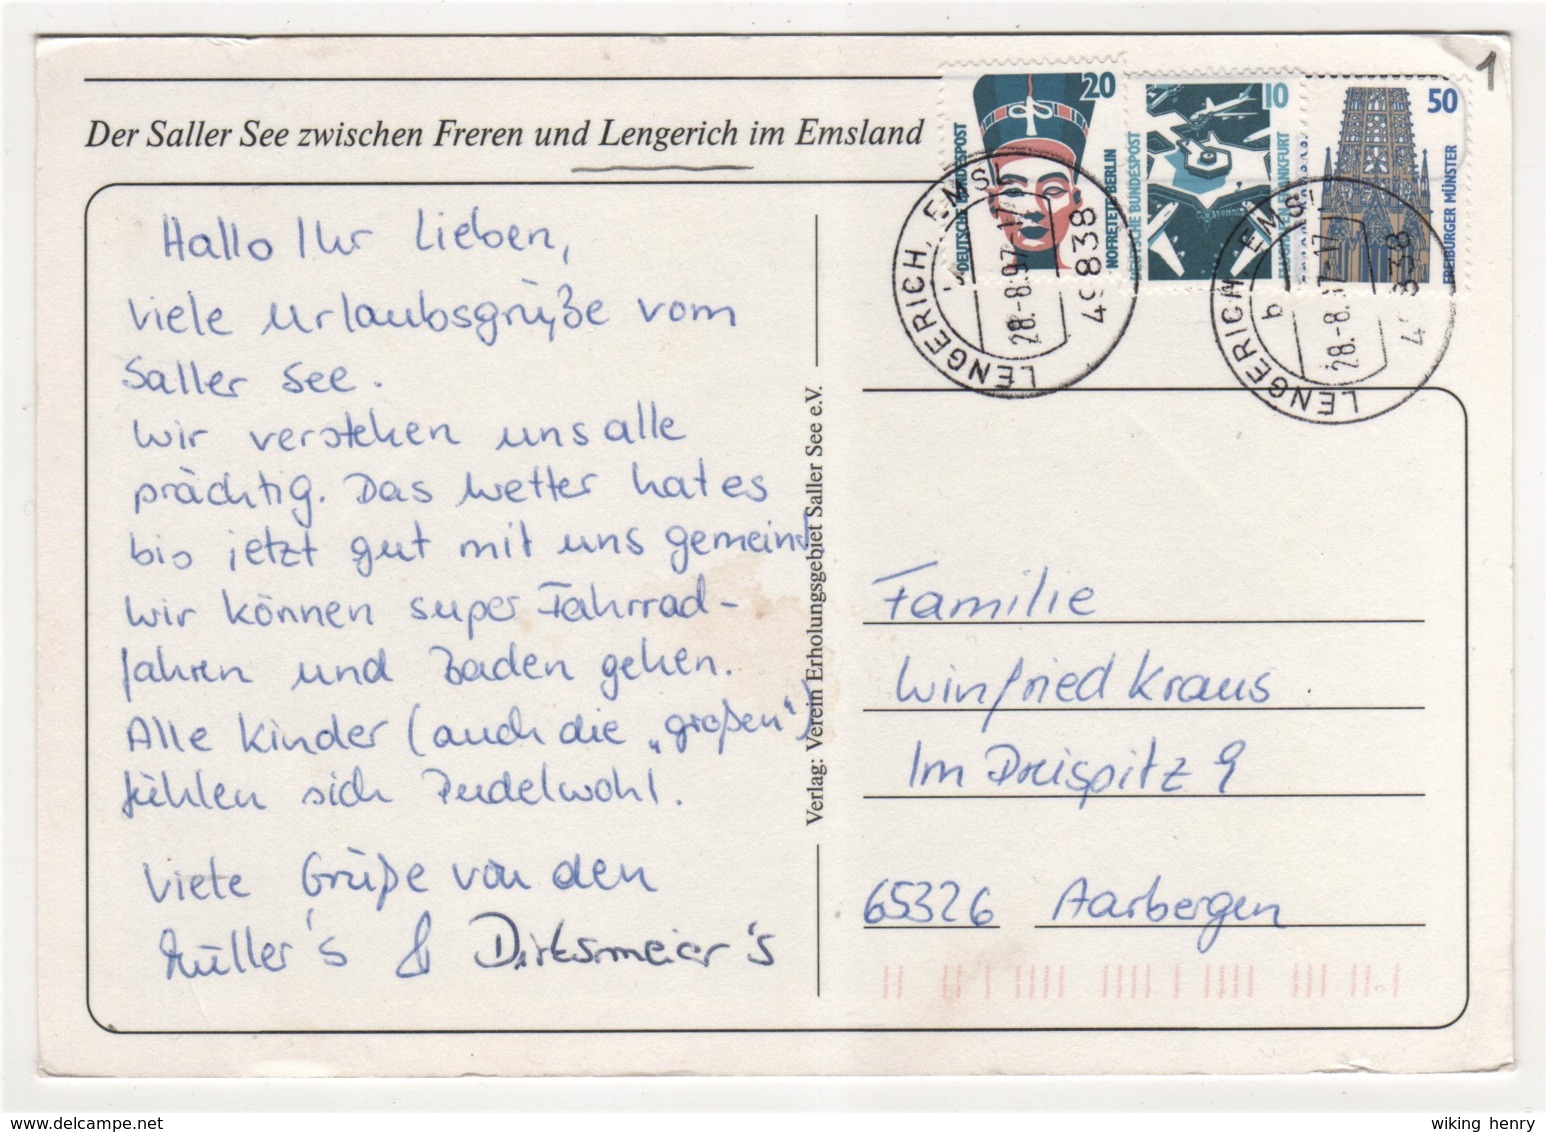 1
Der Saller See zwischen Freren und Lengerich im Emsland
20
DEUTSCHE BUNDESPOST
NOFRETETE BERLIN
10
DEUTSCHE BUNDESPOST
FLUGHAFEN FRANKFURT
50
FREIBURGER MÜNSTER
LENGERICH, EMSL
28.-8.97-17
49838
LENGERICH, EMSL
b
28.-8.97-17
49838
Hallo Ihr Lieben,
viele Urlaubsgrüße vom
Saller See.
Wir verstehen uns alle
prächtig. Das Wetter hat es
bis jetzt gut mit uns gemeint.
Wir können super Fahrrad-
fahren und Baden gehen.
Alle Kinder (auch die „großen“)
fühlen sich Pudelwohl.
Viele Grüße von den
Müller's & Dirksmeier's
Verlag: Verein Erholungsgebiet Saller See e.V.
Familie
Winfried Kraus
Im Dreispitz 9
65326 Aarbergen
wiking henry